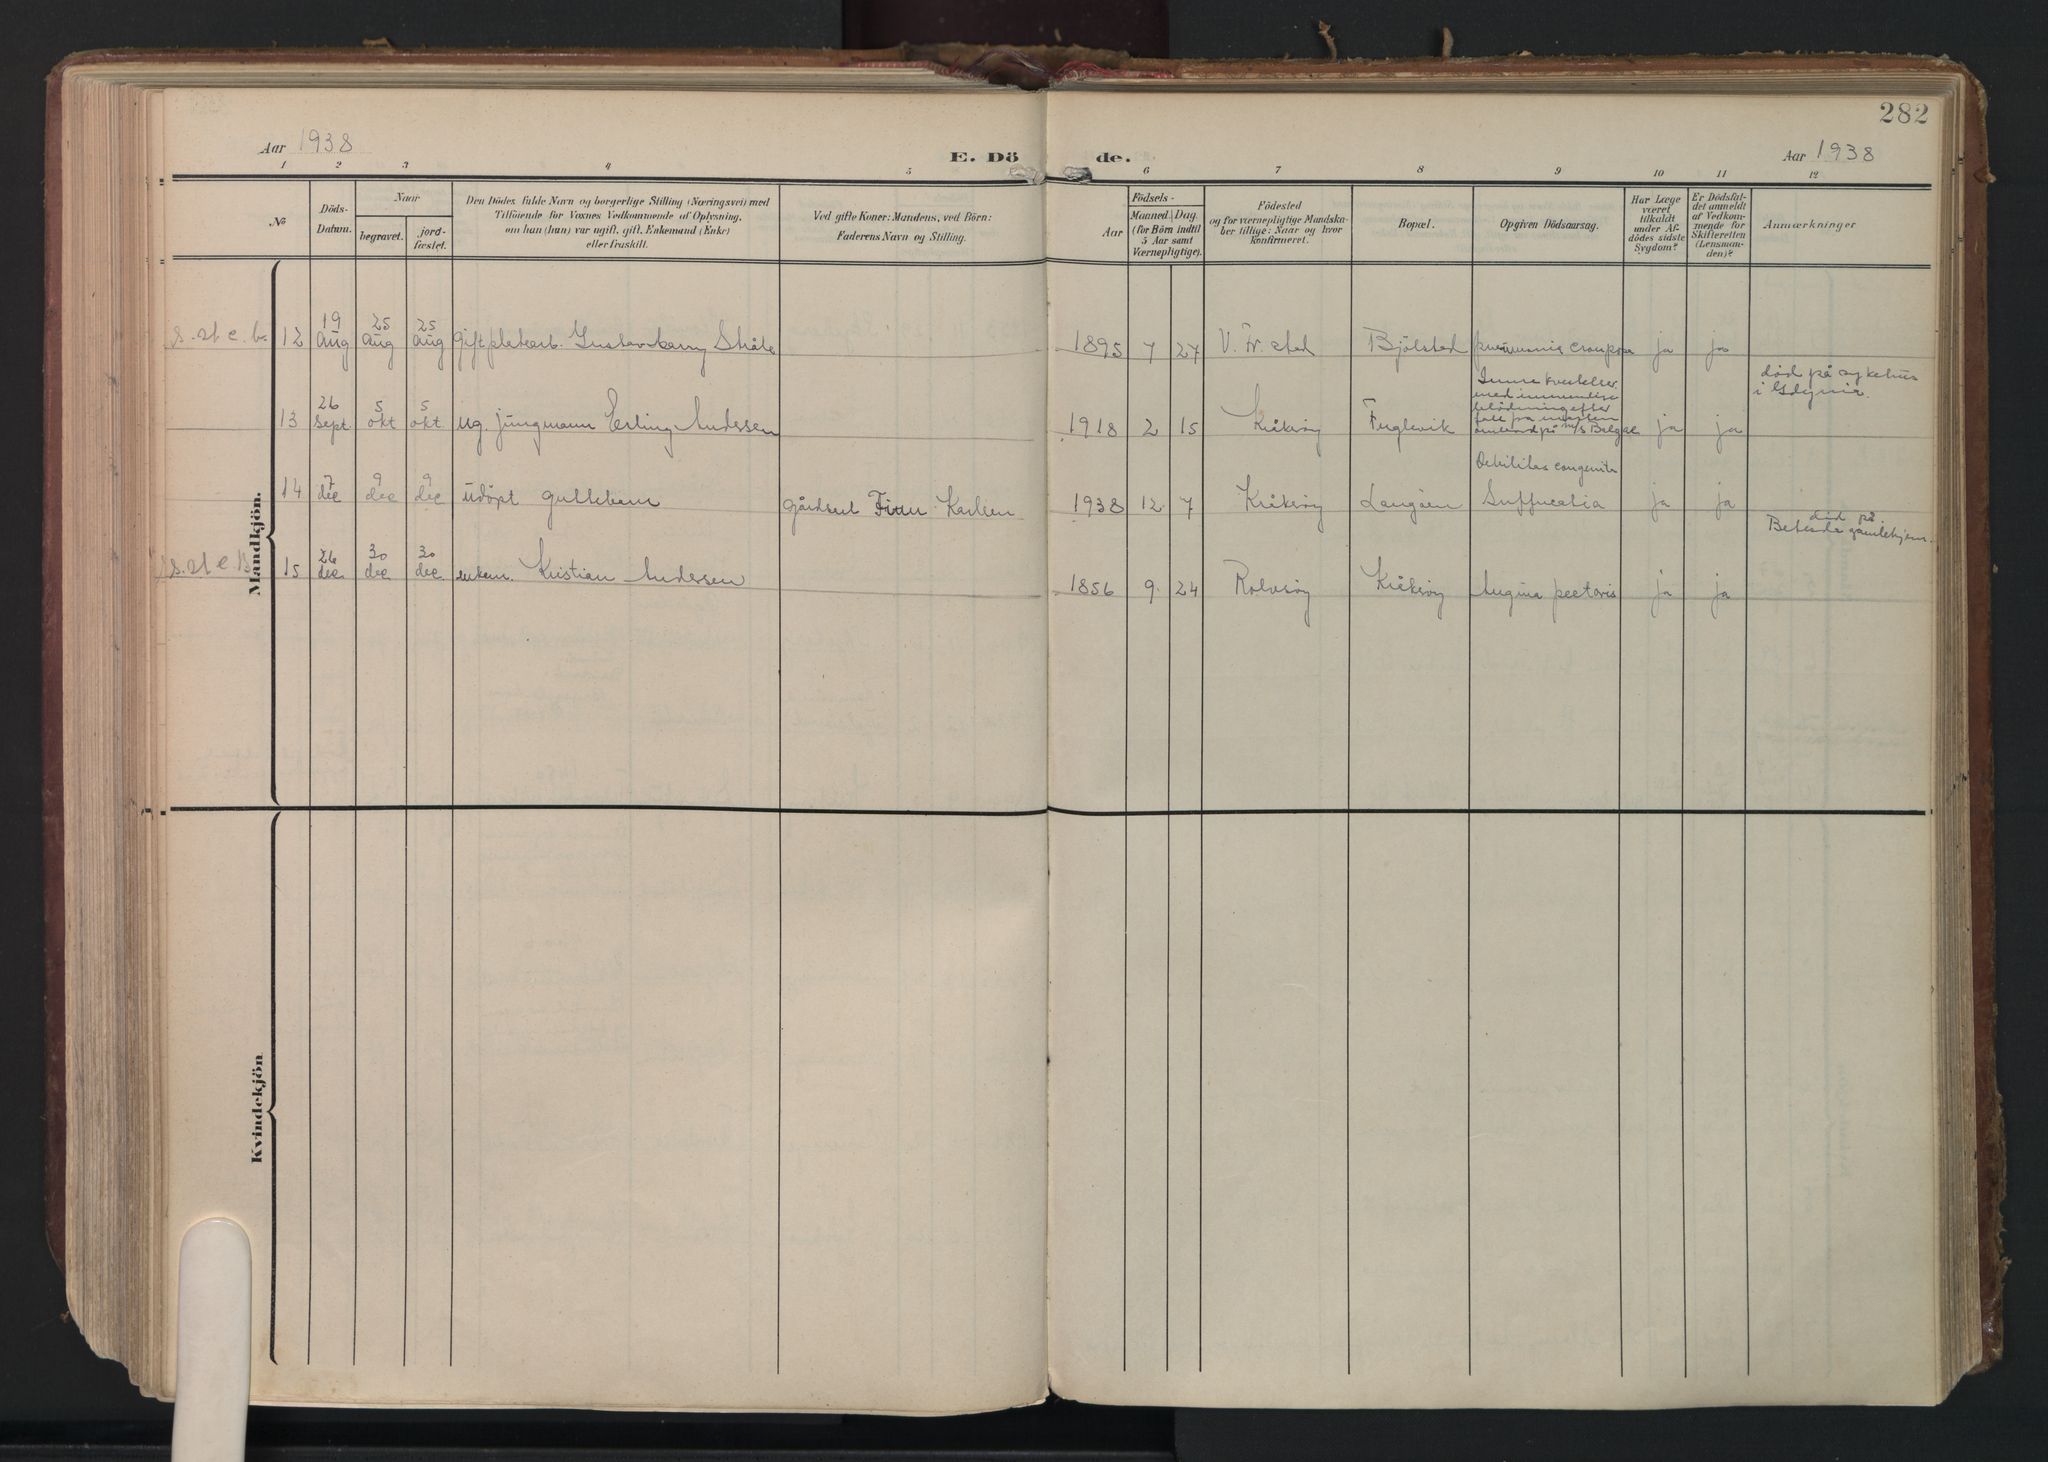 282
Aar 1938
E. Dö de.
Aar 1938
1 2 3 4 5 6 7 8 9 10 11 12
No
Döds-Datum.
Naar
begravet.
jord-fæstet.
Den Dödes fulde Navn og borgerlige Stilling (Næringsvei) med
Tilföiende for Voxnes Vedkommende af Oplysning.
om han (hun) var ugift, gift, Enkemand (Enke)
eller fraskilt.
Ved gifte Koner: Mandens, ved Börn:
Faderens Navn og Stilling.
Födsels-
Aar
Maaned. Dag.
(for Börn indtil
5 Aar samt
Værnepligtige).
Födested
og for værnepligtige Mandska-
ber tillige: Naar og hvor
konfirmeret.
Bopæl.
Opgiven Dödsaarsag.
Har Læge
været
tilkaldt
under Af-
dödes sidste
Sygdom?
Er Dödsfal-
det anmeldt
af Vedkom-
mende for
Skifteretten
(Lensman-
den)?
Anmærkninger
Mandkjön.
12 19 aug 25 aug 25 aug gift platearb. Gustav Harry Stråle 1895 7 27 V. Fr.stad Bjölstad pneumonia crouposa ja ja
13 26 sept 5 okt 5 okt ug. jungmann Erling Andersen 1918 2 15 Kråköy Fuglevik
Indre kvestelser
med innvendige
blödning efter
fall på masten
ombord på m/s Balgae ja ja
död på sykehus
i Gdynia.
14 7 dec 9 dec 9 dec udöpt guttebarn gårdsarb. Finn Karlsen 1938 12 7 Kråköy Langåen
Debilitas congenita
Suffucatia ja ja
s. st e B. 15 26 dec 30 dec 30 dec enkem. Kristian Andersen 1856 9 24 Rolvsöy Kråköy Angina pectoris ja ja
död på
Betesda gamlehjem.
Kvindekjön